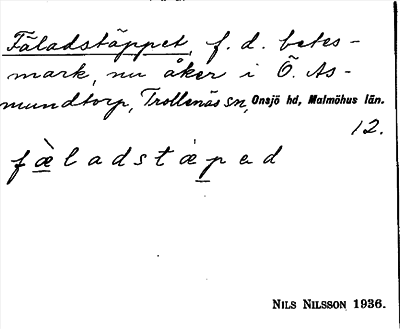 Fäladstäppet, f. d. betes-
mark, nu åker i Ö. As-
mundtorp, Trollenäs sn, Onsjö hd, Malmöhus län.
12.
fæ̀ladstäped
NILS NILSSON 1936.